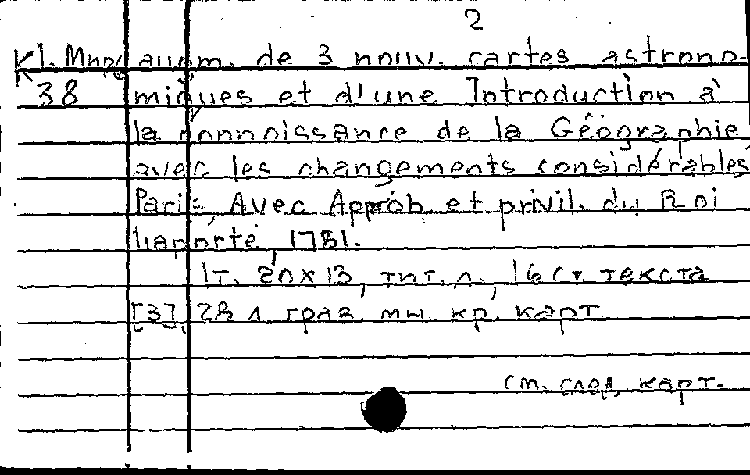 2
К1. Мир augm. de 3 nouv. cartes astrono-
38 miques et d'une Introduction à
la connoissance de la Géographie,
avec les changements considérables
Paris, Avec Approb. et privil. du Roi
Laporte, 1781.
1т. 20x13, тит. л., 16 с. текста
[3], 28 л. грав. мн. кр. карт
См. след. карт.